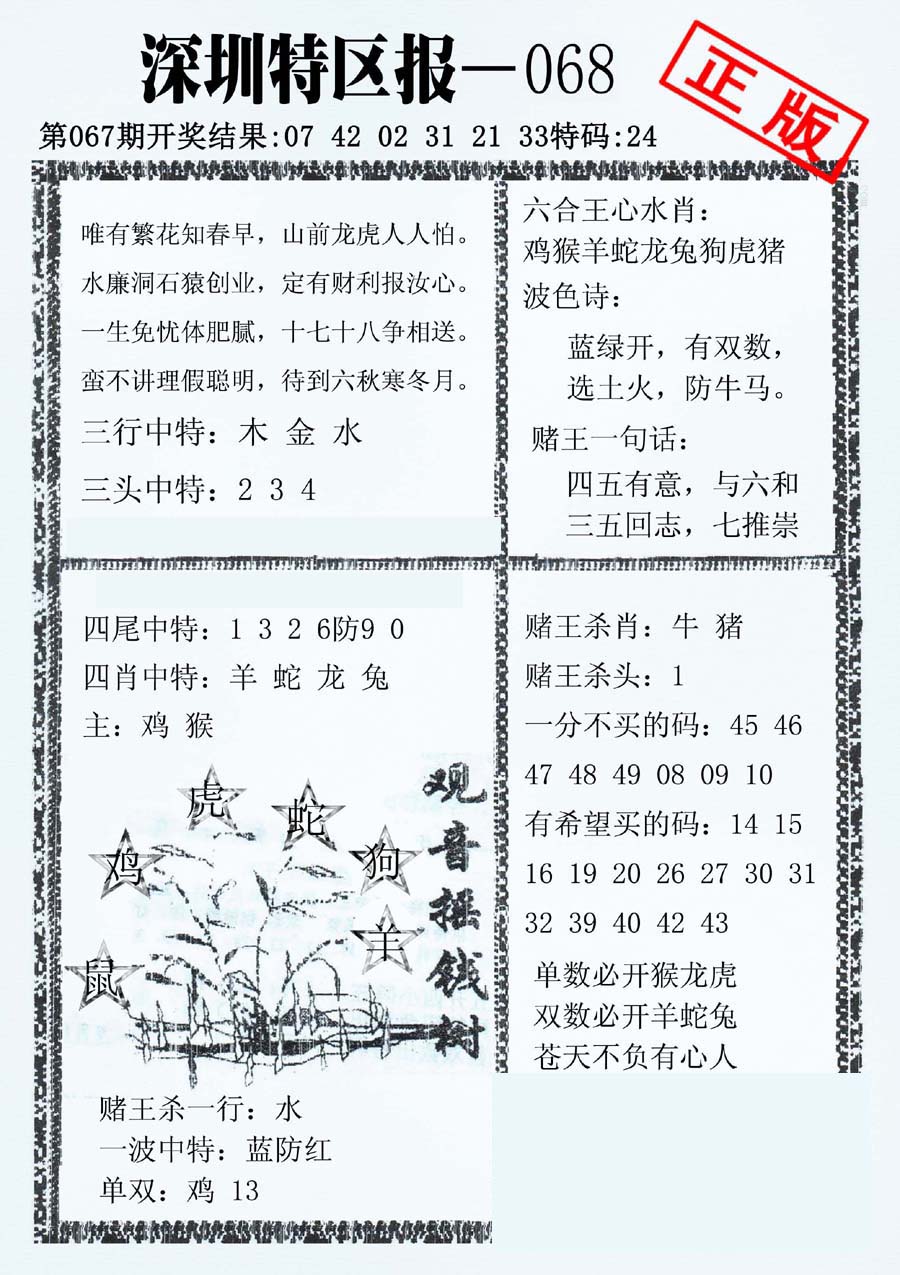 深圳特区报—068
正版
第067期开奖结果:07 42 02 31 21 33特码:24
唯有繁花知春早，山前龙虎人人怕。
水廉洞石猿创业，定有财利报汝心。
一生免忧体肥腻，十七十八争相送。
蛮不讲理假聪明，待到六秋寒冬月。
三行中特：木 金 水
三头中特：2 3 4
六合王心水肖：
鸡猴羊蛇龙兔狗虎猪
波色诗：
蓝绿开，有双数，
选土火，防牛马。
赌王一句话：
四五有意，与六和
三五回志，七推崇
四尾中特：1 3 2 6防9 0
四肖中特：羊 蛇 龙 兔
主：鸡 猴
虎
蛇
鸡
狗
羊
鼠
观音摇钱树
赌王杀一行：水
一波中特：蓝防红
单双：鸡 13
赌王杀肖：牛 猪
赌王杀头：1
一分不买的码：45 46
47 48 49 08 09 10
有希望买的码：14 15
16 19 20 26 27 30 31
32 39 40 42 43
单数必开猴龙虎
双数必开羊蛇兔
苍天不负有心人